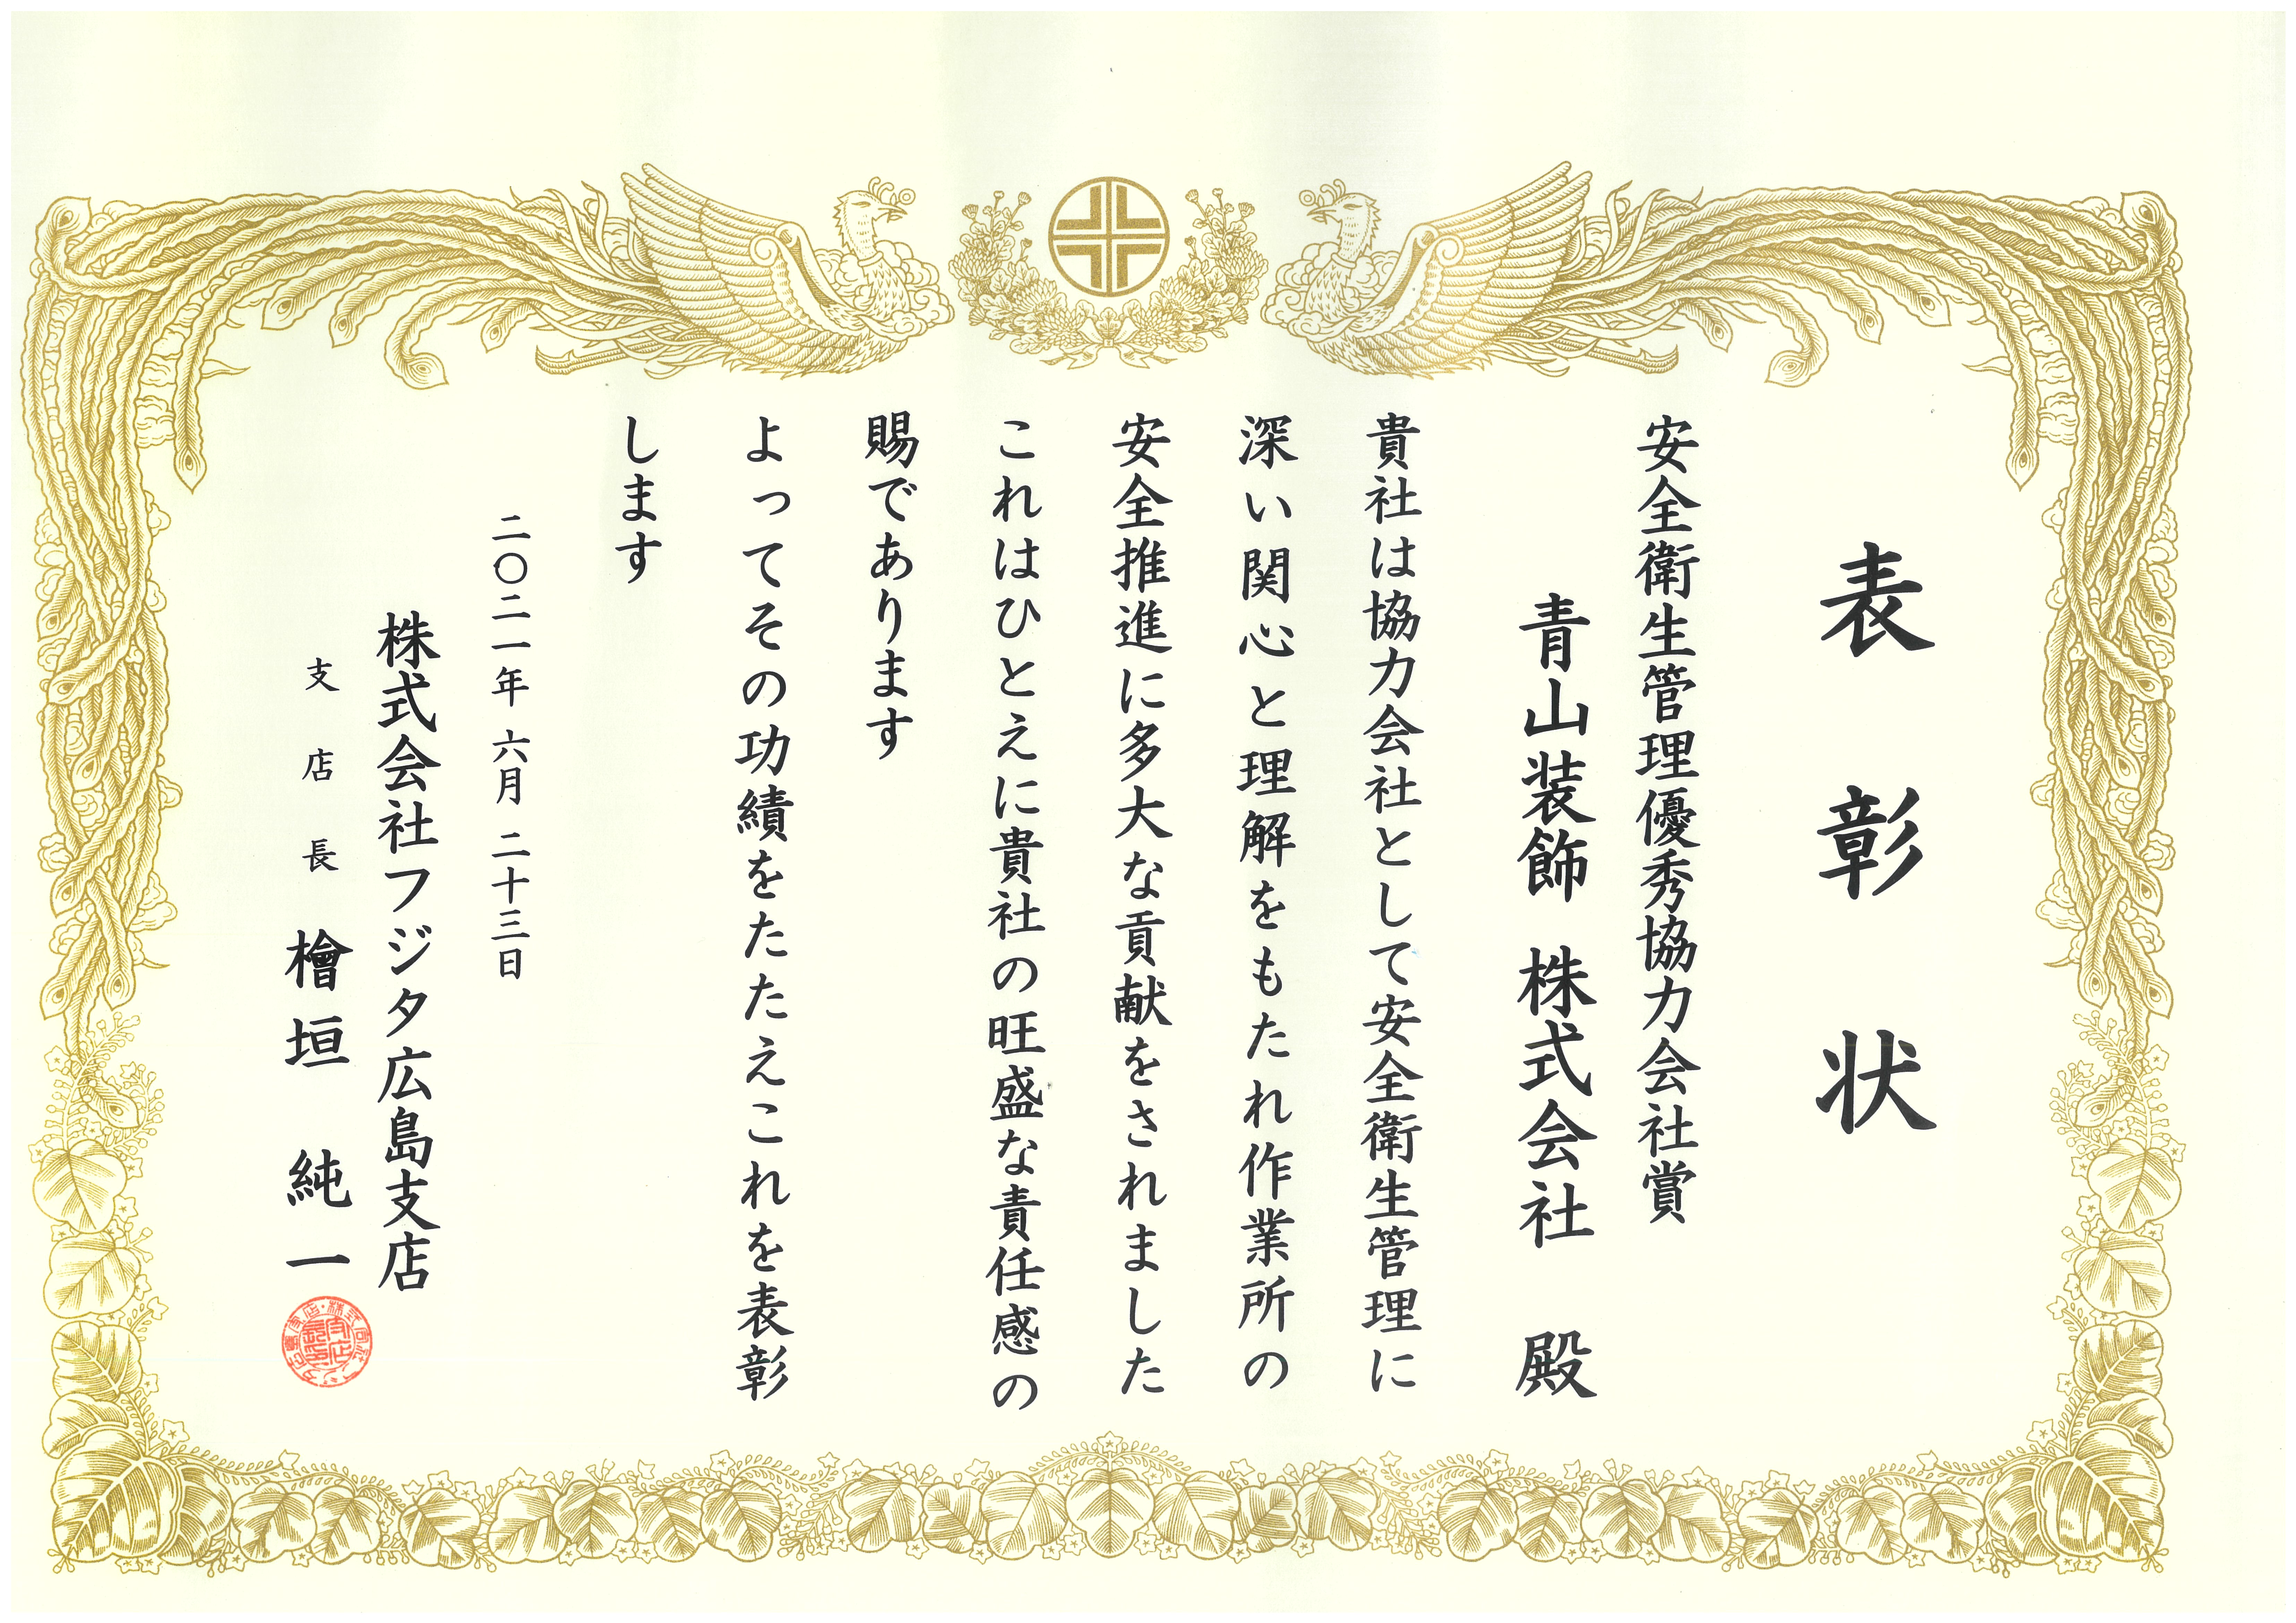 表彰状
安全衛生管理優秀協力会社賞
青山装飾 株式会社 殿
貴社は協力会社として安全衛生管理に
深い関心と理解をもたれ作業所の
安全推進に多大な貢献をされました
これはひとえに貴社の旺盛な責任感の
賜であります
よってその功績をたたえこれを表彰
します
二〇二一年 六月 二十三日
株式会社フジタ広島支店
支店長 檜垣 純一